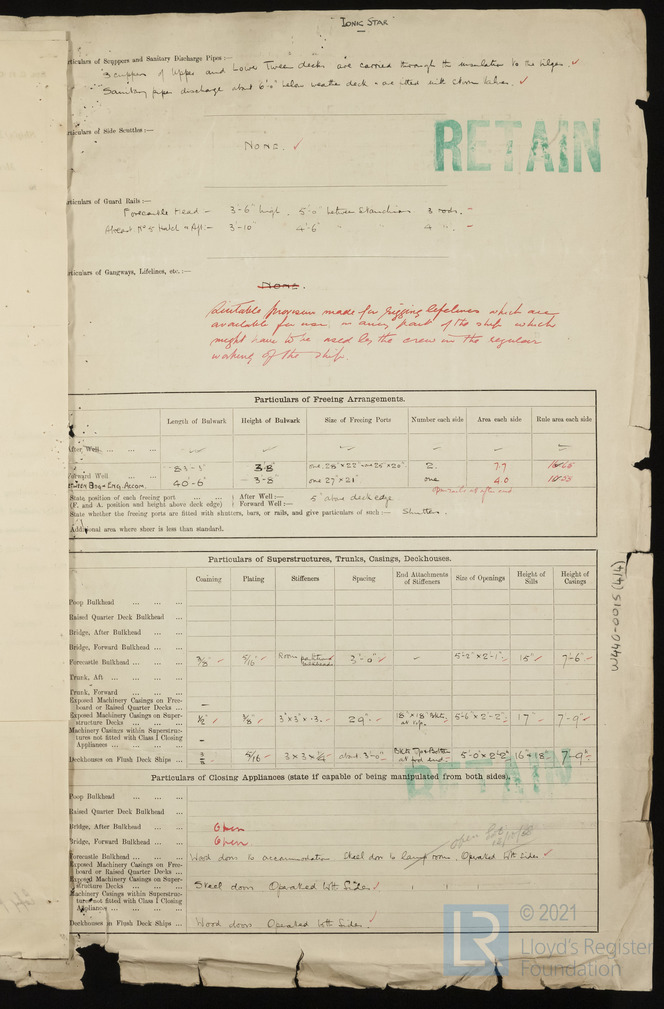 "IONIC STAR"
rticulars of Scuppers and Sanitary Discharge Pipes :—
Scuppers of Upper and Lower Tween decks are carried through the insulation to the bilges. ✓
Sanitary pipes discharge about 6'0" below weather deck & are fitted with storm valves. ✓
rticulars of Side Scuttles :—
NONE. ✓
RETAIN
rticulars of Guard Rails :—
Forecastle Head — 3'-6" high. 5'-0" between Stanchions. 3 rods. —
Abreast Nº 5 Hatch & Aft :— 3'-10" 4'-6" " " 4 ". —
rticulars of Gangways, Lifelines, etc. :—
None.
Suitable provision made for rigging lifelines which are
available for use in any part of the ship which
might have to be used by the crew in the regular
working of the ship.
Particulars of Freeing Arrangements.
Length of Bulwark Height of Bulwark Size of Freeing Ports Number each side Area each side Rule area each side
After Well ... ... ...
Forward Well ... ... 83'-3" 3'-8" one 28"x22" one 25"x20" 2. 7.9
Eng. Accom. 40'-6" 3'-8" one 27"x21" one 4.0
open rails at after end
State position of each freeing port ... ... After Well :— 5" above deck edge
(F. and A. position and height above deck edge) Forward Well :—
State whether the freeing ports are fitted with shutters, bars, or rails, and give particulars of such :— Shutters.
Additional area where sheer is less than standard.
Particulars of Superstructures, Trunks, Casings, Deckhouses.
Coaming Plating Stiffeners Spacing End Attachments of Stiffeners Size of Openings Height of Sills Height of Casings
Poop Bulkhead ... ... ...
Raised Quarter Deck Bulkhead ...
Bridge, After Bulkhead ... ...
Bridge, Forward Bulkhead ... ...
Forecastle Bulkhead ... ... ... 3/8" ✓ 5/16" ✓ 3'-0" ✓ ✓ 5'-2" x 2'-1" ✓ 15" ✓ 7'-6" ✓
Trunk, Aft ... ... ... ...
Trunk, Forward ... ... ...
Exposed Machinery Casings on Free-
board or Raised Quarter Decks ... —
Exposed Machinery Casings on Super-
structure Decks ... ... ... 1/2" ✓ 3/8" ✓ 3" x 3" x .3. ✓ 29" ✓ 18" x 18" Bkts. at top 5'-6" x 2'-2" 17" ✓ 7'-9" ✓
Machinery Casings within Superstruc-
tures not fitted with Class I Closing
Appliances ... ... ... ... —
Deckhouses on Flush Deck Ships ... 5/16 3 x 3 x 1/4 about 3'-0" Bkts Top & Bottom at fwd end 5'-0 x 2'-2" 16" x 18" 7'-9"
RETAIN
Particulars of Closing Appliances (state if capable of being manipulated from both sides).
Poop Bulkhead ... ... ...
Raised Quarter Deck Bulkhead ...
Bridge, After Bulkhead ... ... Open
Bridge, Forward Bulkhead ... ... Open
Forecastle Bulkhead ... ... ... Wood doors to accommodation Steel door to lamp room. Operated both sides ✓
Exposed Machinery Casings on Free-
board or Raised Quarter Decks ...
Exposed Machinery Casings on Super-
structure Decks ... ... ... Steel doors Operated both Sides ✓
Machinery Casings within Superstruc-
tures not fitted with Class I Closing
Appliances ... ... ... ...
Deckhouses on Flush Deck Ships ... Wood doors Operated both Sides. ✓
W440-0015 (4/4)
LR
© 2021
Lloyd's Register
Foundation